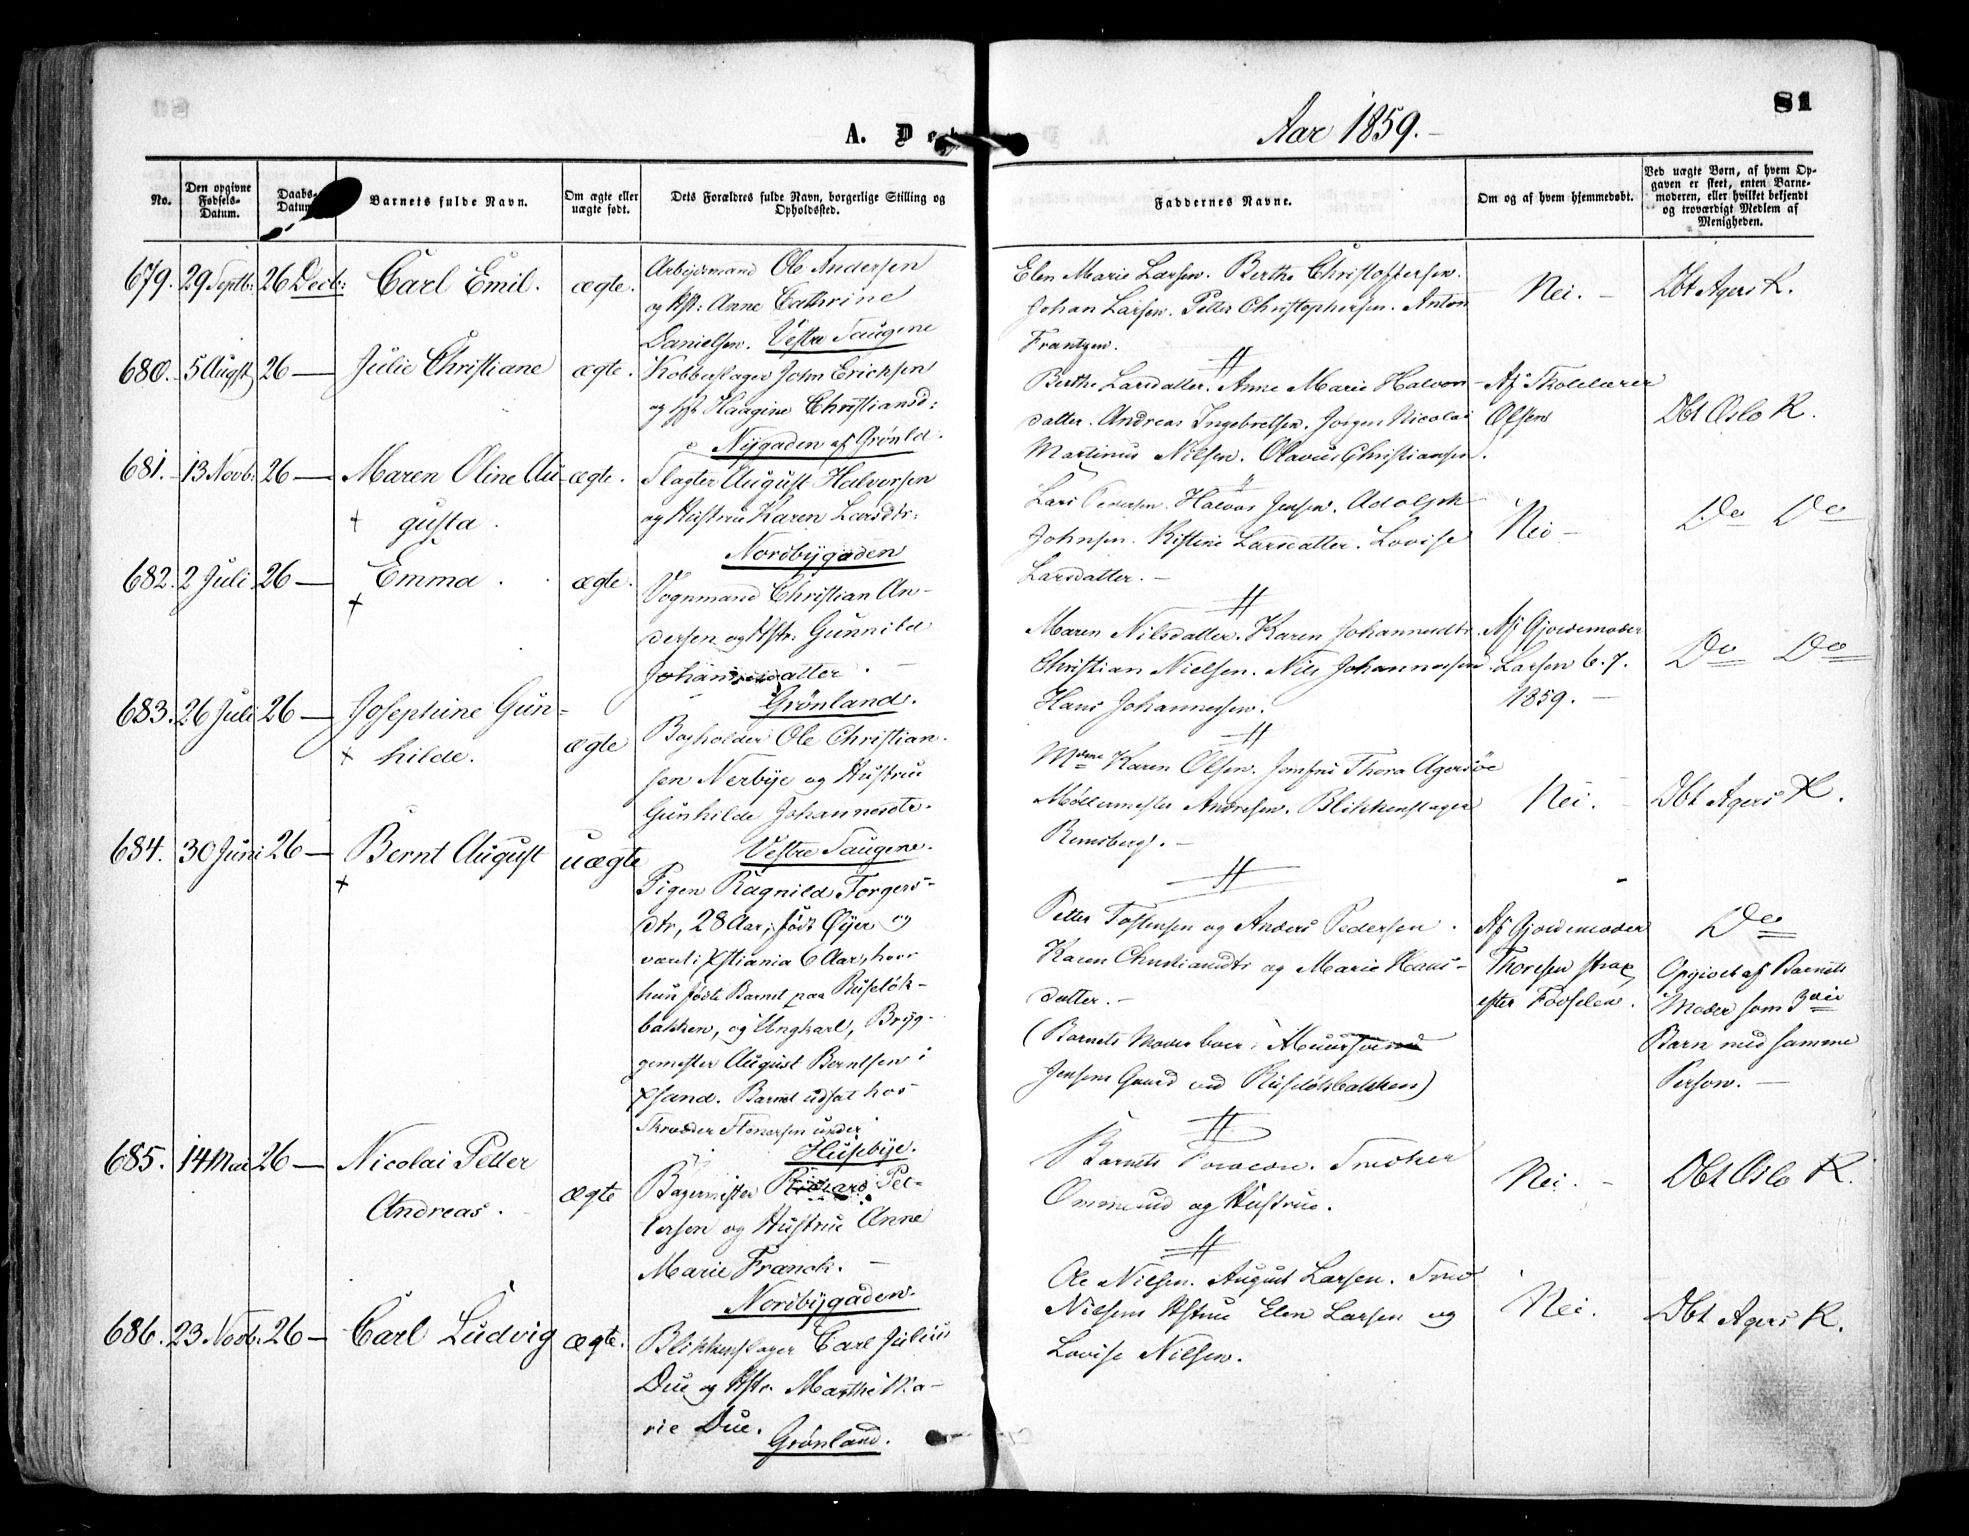 81
A. D
Aar 1859.-
No.
Den opgivne
Fødsels-
Datum.
Daabs-
Datum.
Barnets fulde Navn.
Om ægte eller
uægte født.
Dets Forældres fulde Navn, borgerlige Stilling og
Opholdssted.
Faddernes Navne.
Om og af hvem hjemmedøbt.
Ved uægte Børn, af hvem Op-
gaven er skeet, enten Barne-
moderen, eller hvilket bekjendt
og troværdigt Medlem af
Menigheden.
679. 29 Septb: 26 Decb: Carl Emil. ægte.
Arbeidsmand Ole Andersen
og Hst: Anne Cathrine
Danielsen. Vestre Saugene
Elen Marie Larsen. Berthe Christoffersen.
Johan Larsen. Petter Christophersen. Anton
Frantzen.
Nei. -
Dbt Agers K.
680. 5 Augst 26 — Julie Christiane ægte.
Kobberslager John Ericksen
og Hst Haagine Christiansd:
Nygaden af Grønld.
Berthe Larsdatter. Anne Marie Halvors-
datter. Andreas Ingebretsen. Jørgen Nicolai
Martinus Nilsen. Olavus Christiansen.
Af Skolelærer
Olsen
Dbt Oslo K.
681. 13 Novb: 26 — Maren Oline Au-
gusta. ægte.
Slagter August Halvorsen
og Hustru Karen Larsdtr:
Nordbygaden
Lars Pedersen. Halvor Jensen. Adolph
Johnsen. Kistine Larsdatter. Lovise
Larsdatter. -
Nei -
Do Do
682. 2 Juli 26 — Emma. ægte.
Vognmand Christian An-
dersen og Hstr: Gunnild
Johannesdatter. -
Grønland.
Maren Nilsdatter. Karen Johannesdtr.
Christian Nielsen. Nils Johannessen
Hans Johannessen.
Af Gjordemoder
Larsen 6.7.
1859. -
Do Do
683. 26 Juli 26 — Josephine Gun-
hilde. ægte
Bogholder Ole Christian-
sen Nerbye og Hustru
Gunhilde Johannesdtr.
Vestre Saugene.
Mdme Karen Olsen. Jomfru Thora Agersøe
Møllermester Andresen. Blikkenslager
Remsberg. -
Nei. -
Dbt Agers K.
684. 30 Juni 26 — Bernt August uægte
Pigen Ragnild Torgers-
dtr, 28 Aar, født Øyer og
været i Xstiania 6 Aar, hvor
hun fødte Barnet paa Ruseløk-
bakken, og Ungkarl, Bryg-
gemester August Berntsen i
Xsand. Barnet udsat hos
Skræder Stenersen under
Husebye.
Petter Tostensen og Anders Pedersen.
Karen Christiansdtr og Marie Hans-
datter. -
(Barnets Moder boer i Muursvend
Jensens Gaard ved Ruseløkbakken)
Af Gjordemoder
Thoresen strax
efter Fødselen.
Do
Opgivet af Barnets
Moder som 3die
Barn med samme
Person. -
685. 14 Mai 26 — Nicolai Petter
Andreas. ægte
Bagermester Richard Pet-
tersen og Hustru Anne
Marie Franck. -
Nordbygaden.
Barnets Forældre. Snedker
Ommund og Hustrue.
Nei. -
Dbt Oslo K.
686. 23 Novb. 26 — Carl Ludvig ægte.
Blikkenslager Carl Julius
Due og Hstr. Marthe Ma-
rie Due.
Grønland.
Ole Nielsen. August Larsen. Smed
Nielsens Hstrue Elen Larsen og
Lovise Nilsen.
Nei.
Dbt Agers K.